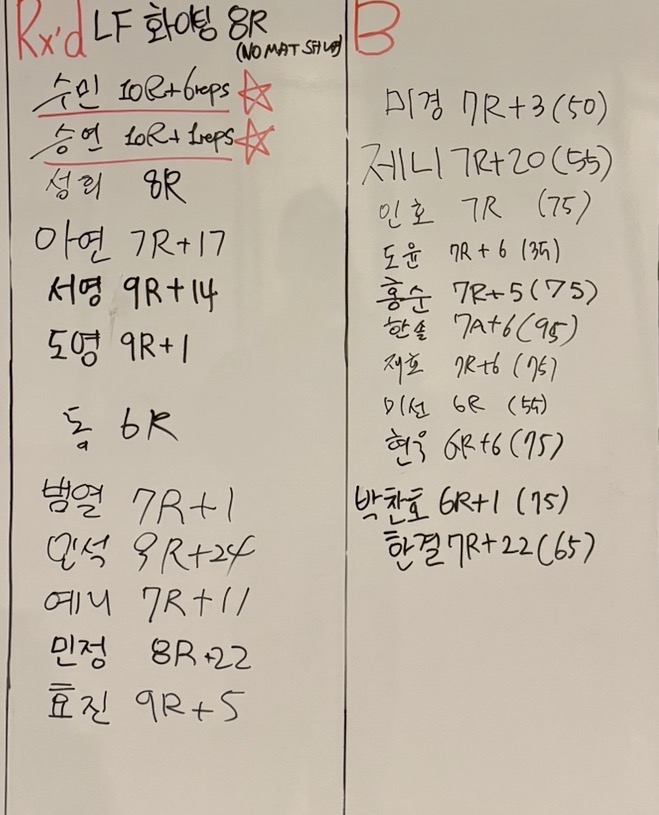 Rx'd LF 화이팅 8R
수민 10R+6reps
승연 10R+1reps
성희 8R
아연 7R+17
서영 9R+14
도영 9R+1
동 6R
범열 7R+1
민석 9R+24
예니 7R+11
민정 8R+22
효진 9R+5
B
미경 7R+3(50)
제니 7R+20(55)
인호 7R (75)
도윤 7R+6 (35)
홍순 7R+5(75)
한솔 7R+6(95)
재호 7R+6 (75)
미선 6R (55)
현욱 6R+6(75)
박찬호 6R+1 (75)
한결 7R+22(65)